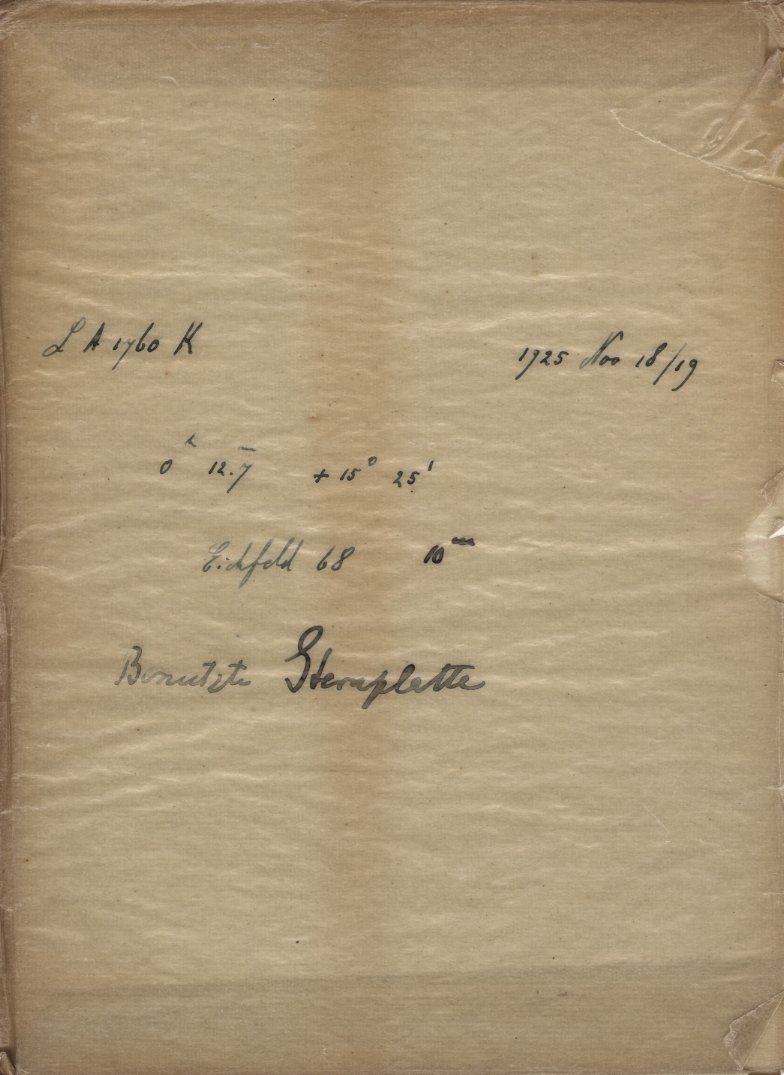 L A 1760 K 1925 Nov 18/19
0ʰ 12.7ᵐ + 15° 25'
Eichfeld 68 10ᵐ
Benutzte Sternplatte